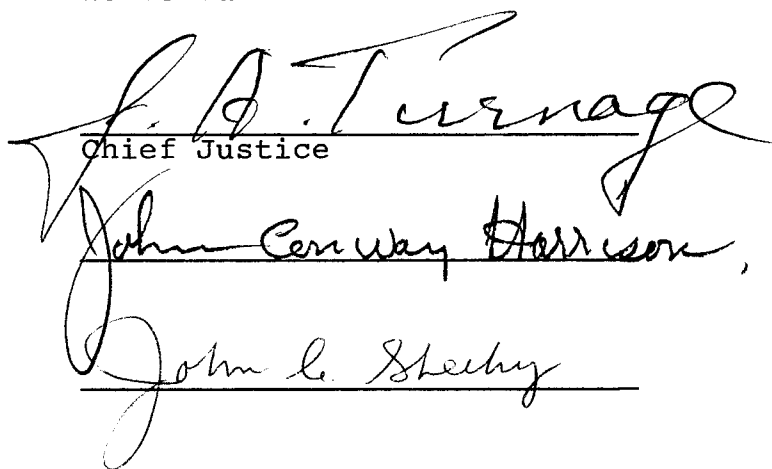 J. A. Turnage
Chief Justice
John Conway Harrison,
John C. Sheehy